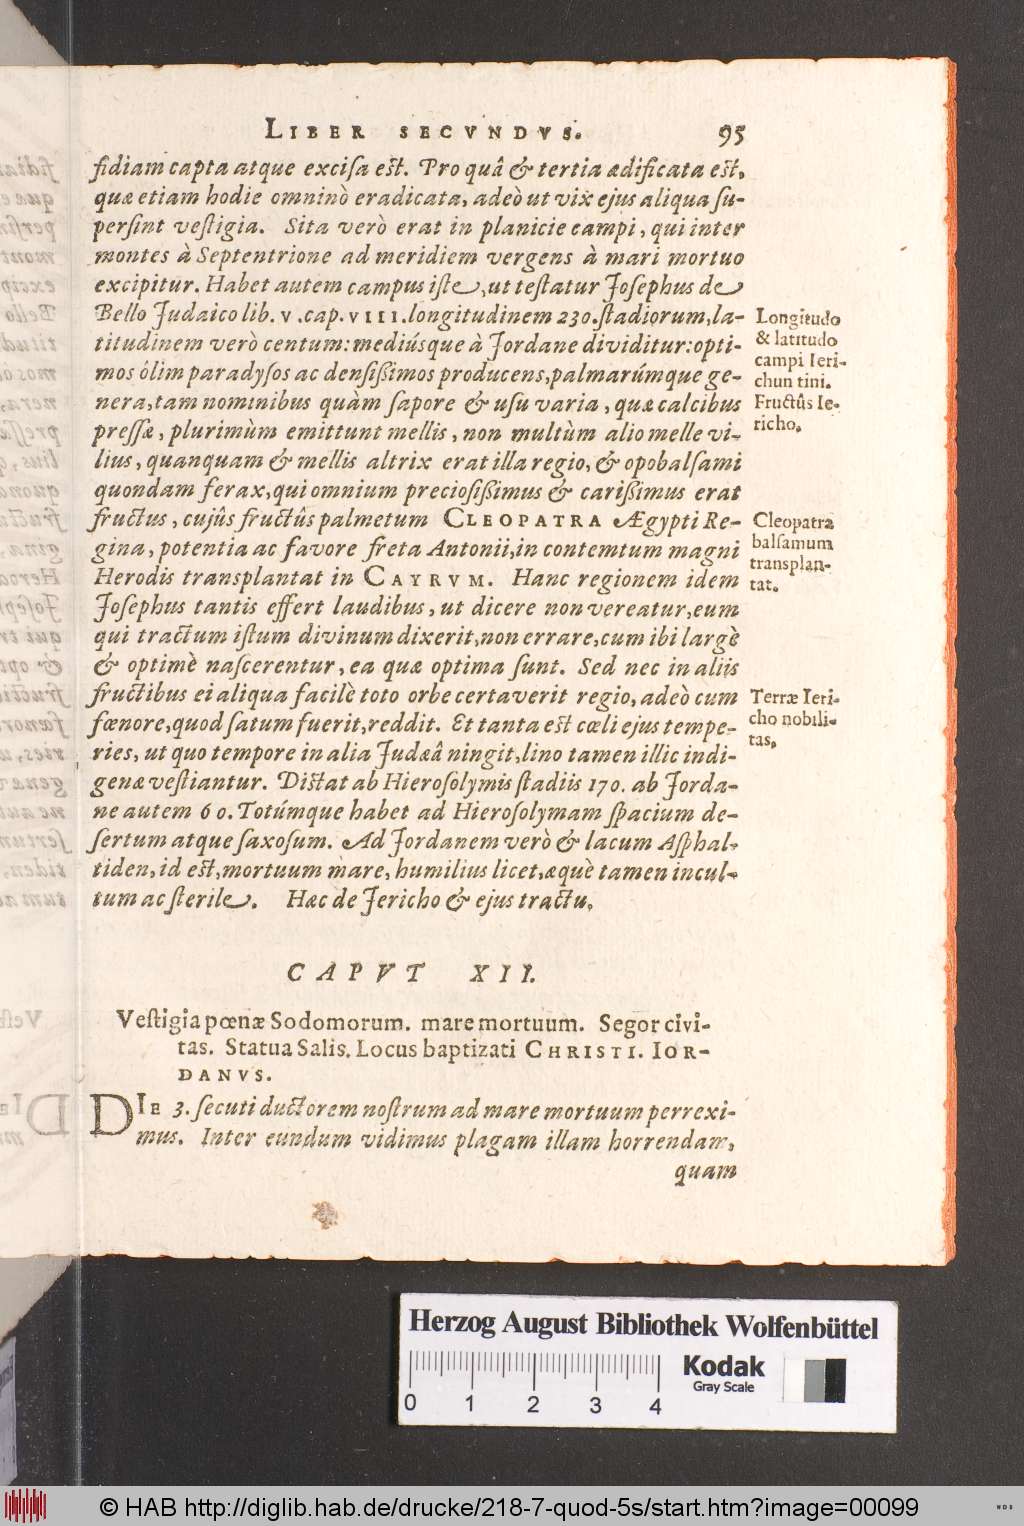 LIBER SECVNDVS. 95
fidiam capta atque excisa est. Pro quâ & tertia ædificata est,
quæ etiam hodie omninò eradicata, adeò ut vix ejus aliqua su-
persint vestigia. Sita verò erat in planicie campi, qui inter
montes à Septentrione ad meridiem vergens à mari mortuo
excipitur. Habet autem campus iste, ut testatur Josephus de
Bello Judaico lib. V. cap. VIII. longitudinem 230. stadiorum, la-
titudinem verò centum: mediúsque à Jordane dividitur: opti-
mos ólim paradysos ac densißimos producens, palmarúmque ge-
nera, tam nominibus quàm sapore & usu varia, quæ calcibus
pressæ, plurimùm emittunt mellis, non multùm alio melle vi-
lius, quanquam & mellis altrix erat illa regio, & opobalsami
quondam ferax, qui omnium preciosißimus & carißimus erat
fructus, cujûs fructûs palmetum CLEOPATRA Ægypti Re-
gina, potentia ac favore freta Antonii, in contemtum magni
Herodis transplantat in CAYRVM. Hanc regionem idem
Josephus tantis effert laudibus, ut dicere non vereatur, eum
qui tractum istum divinum dixerit, non errare, cum ibi largè
& optimè nascerentur, ea quæ optima sunt. Sed nec in aliis
fructibus ei aliqua facilè toto orbe certaverit regio, adeò cum
fœnore, quod satum fuerit, reddit. Et tanta est cœli ejus tempe-
ries, ut quo tempore in alia Judæâ ningit, lino tamen illic indi-
genæ vestiantur. Distat ab Hierosolymis stadiis 170. ab Jorda-
ne autem 60. Totúmque habet ad Hierosolymam spacium de-
sertum atque saxosum. Ad Jordanem verò & lacum Asphal-
tiden, id est, mortuum mare, humilius licet, æquè tamen incul-
tum ac sterile. Hæc de Jericho & ejus tractu.
Longitudo
& latitudo
campi Ieri-
chun tini.
Fructûs Ie-
richo.
Cleopatra
balsamum
transplan-
tat.
Terræ Ieri-
cho nobili-
tas.
CAPVT XII.
Vestigia pœnæ Sodomorum. mare mortuum. Segor civi-
tas. Statua Salis. Locus baptizati CHRISTI. IOR-
DANVS.
DIE 3. secuti ductorem nostrum ad mare mortuum perrexi-
mus. Inter eundum vidimus plagam illam horrendam,
quam
Herzog August Bibliothek Wolfenbüttel
Kodak
Gray Scale
0 1 2 3 4
© HAB http://diglib.hab.de/drucke/218-7-quod-5s/start.htm?image=00099